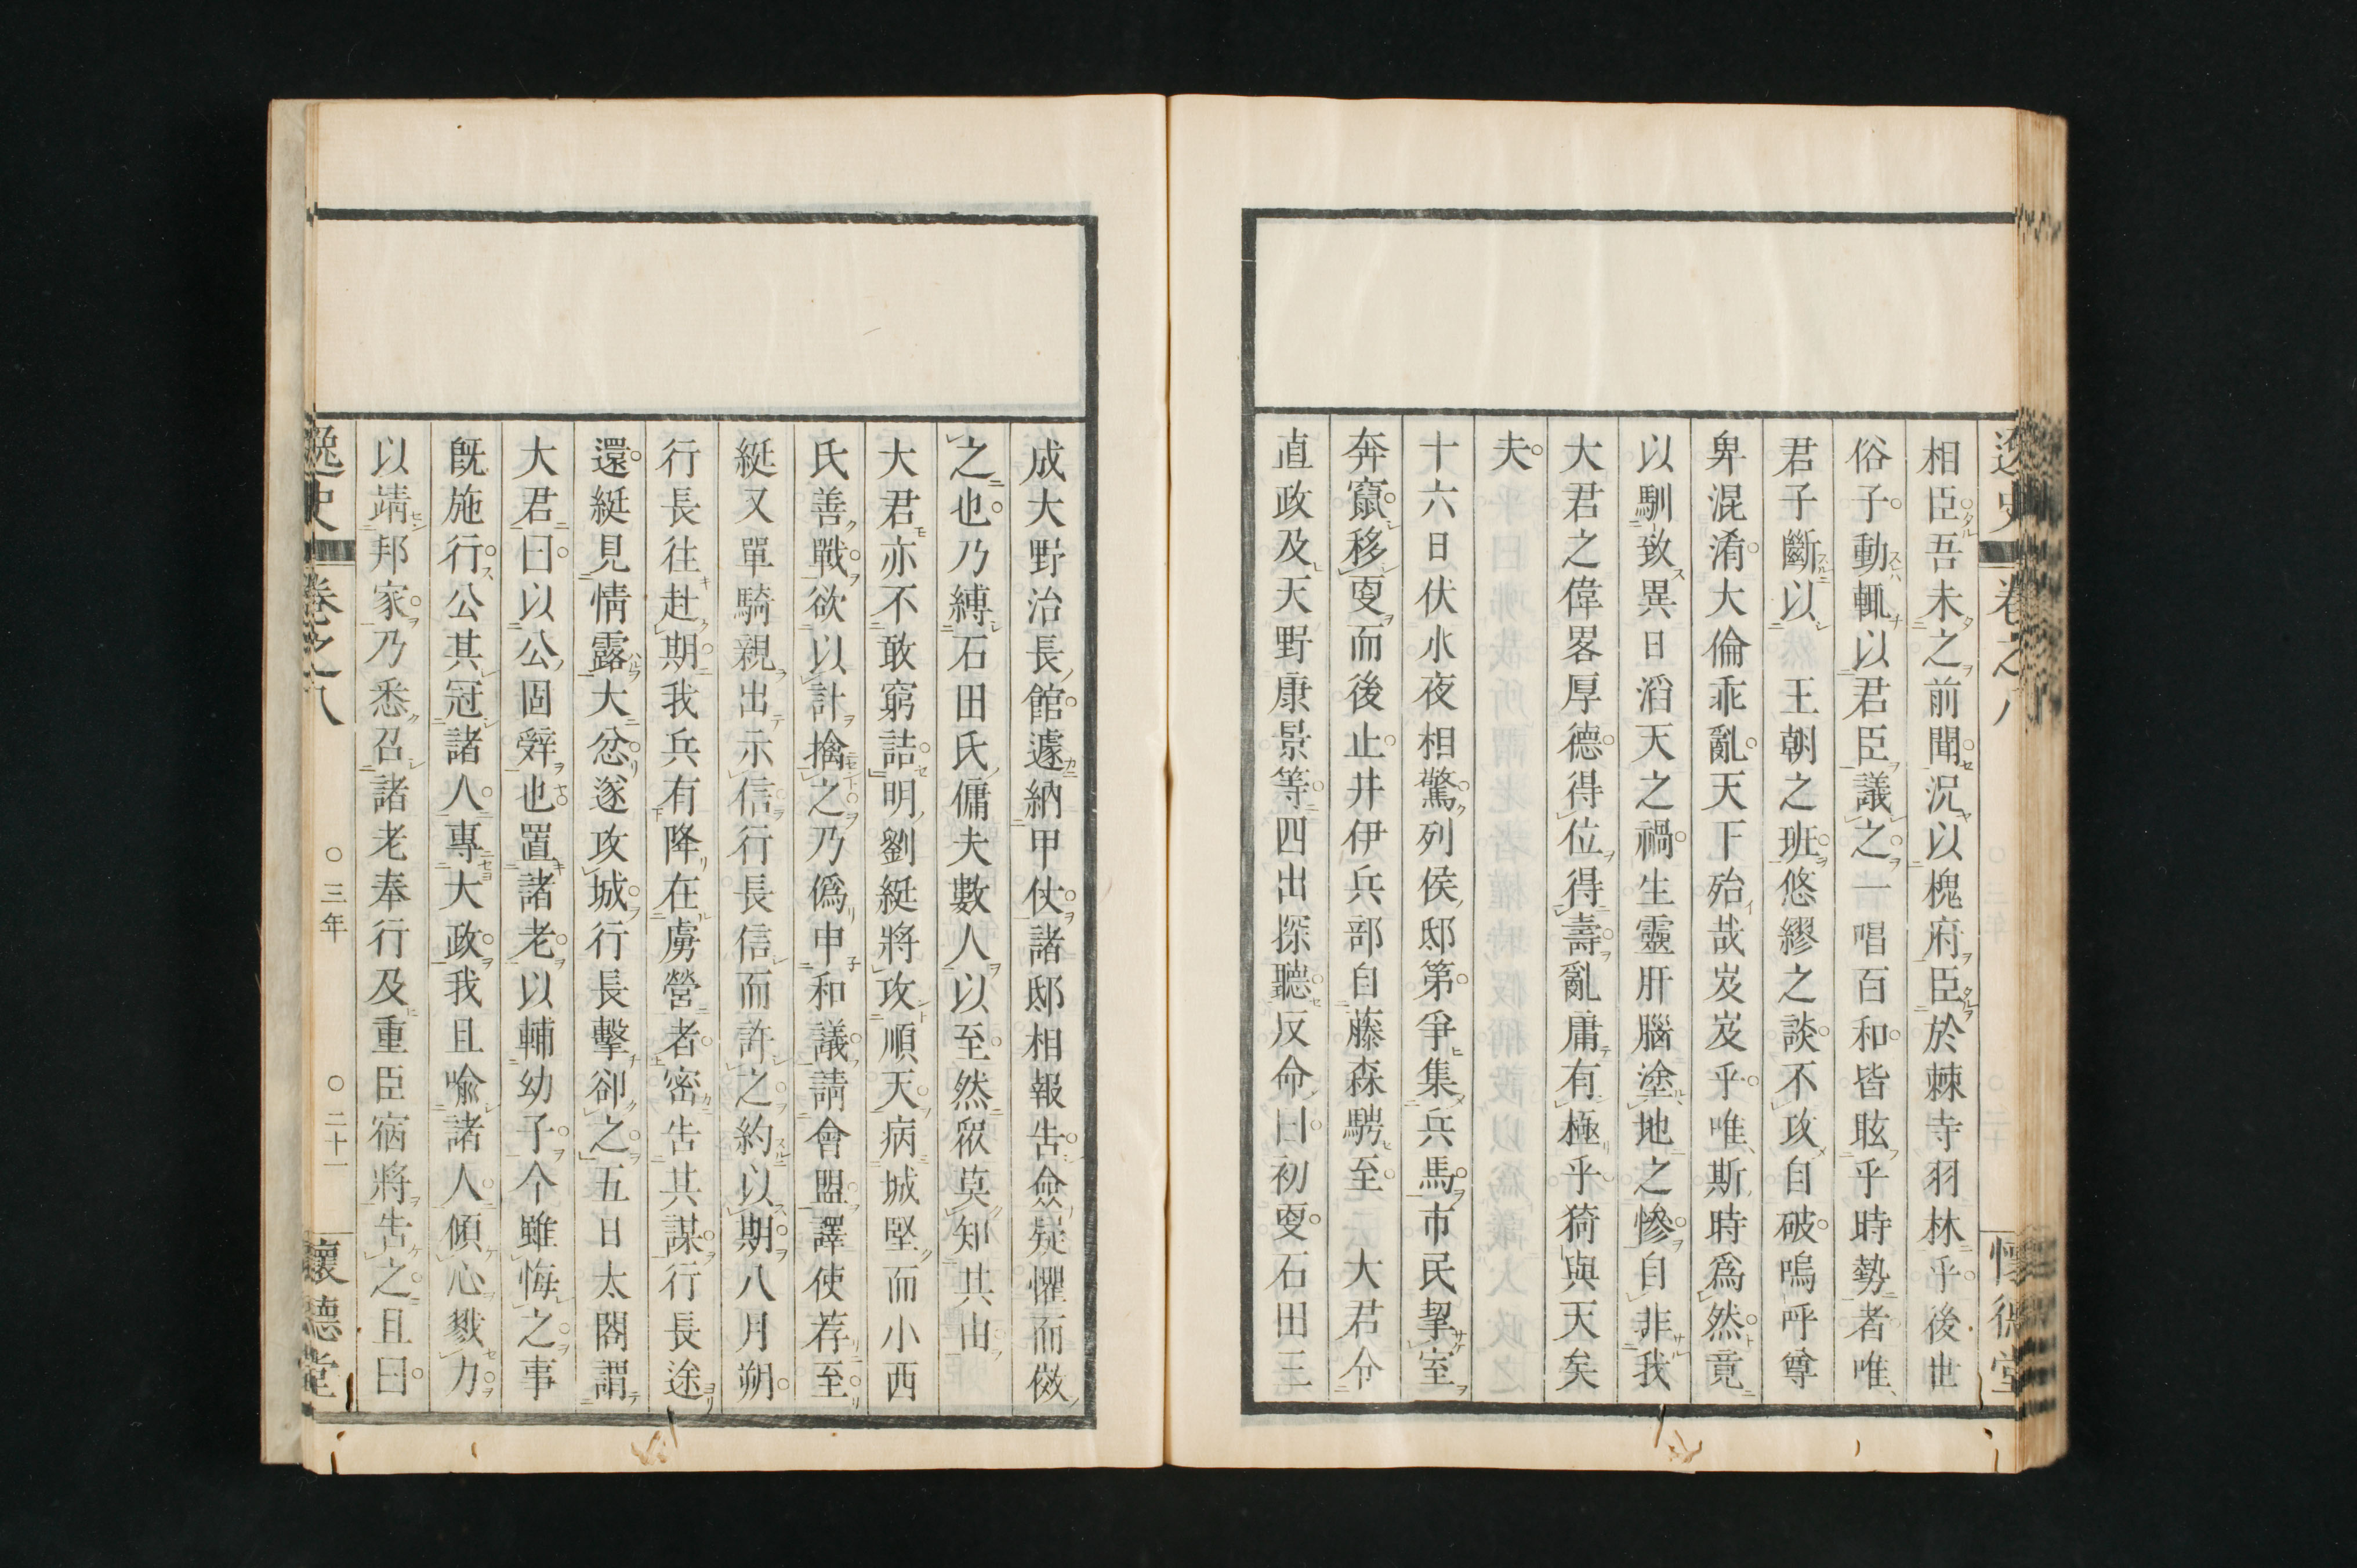 相臣吾未之前聞況以槐府臣於棘寺羽林乎後世
俗子動輒以君臣議之一唱百和皆眩乎時勢者唯
君子斷以王朝之班悠繆之談不攻自破嗚呼尊
卑混淆大倫乖亂天下殆哉岌岌乎唯斯時爲然竟
以馴致異日滔天之禍生靈肝腦塗地之慘自非我
大君之偉畧厚德得位得壽亂庸有極乎猗與天矣
夫
十六日伏水夜相驚列侯邸第爭集兵馬市民挈室
奔竄移叓而後止井伊兵部自藤森騁至 大君令
直政及天野康景等四出探聽反命曰初叓石田三
成大野治長館遽納甲仗諸邸相報告僉疑懼而儆
之也乃縛石田氏傭夫數人以至然衆莫知其由
大君亦不敢窮詰明劉綎將攻順天病城堅而小西
氏善戰欲以計擒之乃僞申和議請會盟譯使荐至
綎又單騎親出示信行長信而許之約以期八月朔
行長往赴期我兵有降在虜營者密告其謀行長途
還綎見情露大忿遂攻城行長擊卻之五日太閤謂
大君曰以公固辤也置諸老以輔幼子今雖悔之事
旣施行公其冠諸人專大政我且喩諸人傾心戮力
以靖邦家乃悉召諸老奉行及重臣宿將告之且曰
逸史 卷之八 〇三年 〇二十一 懷德堂